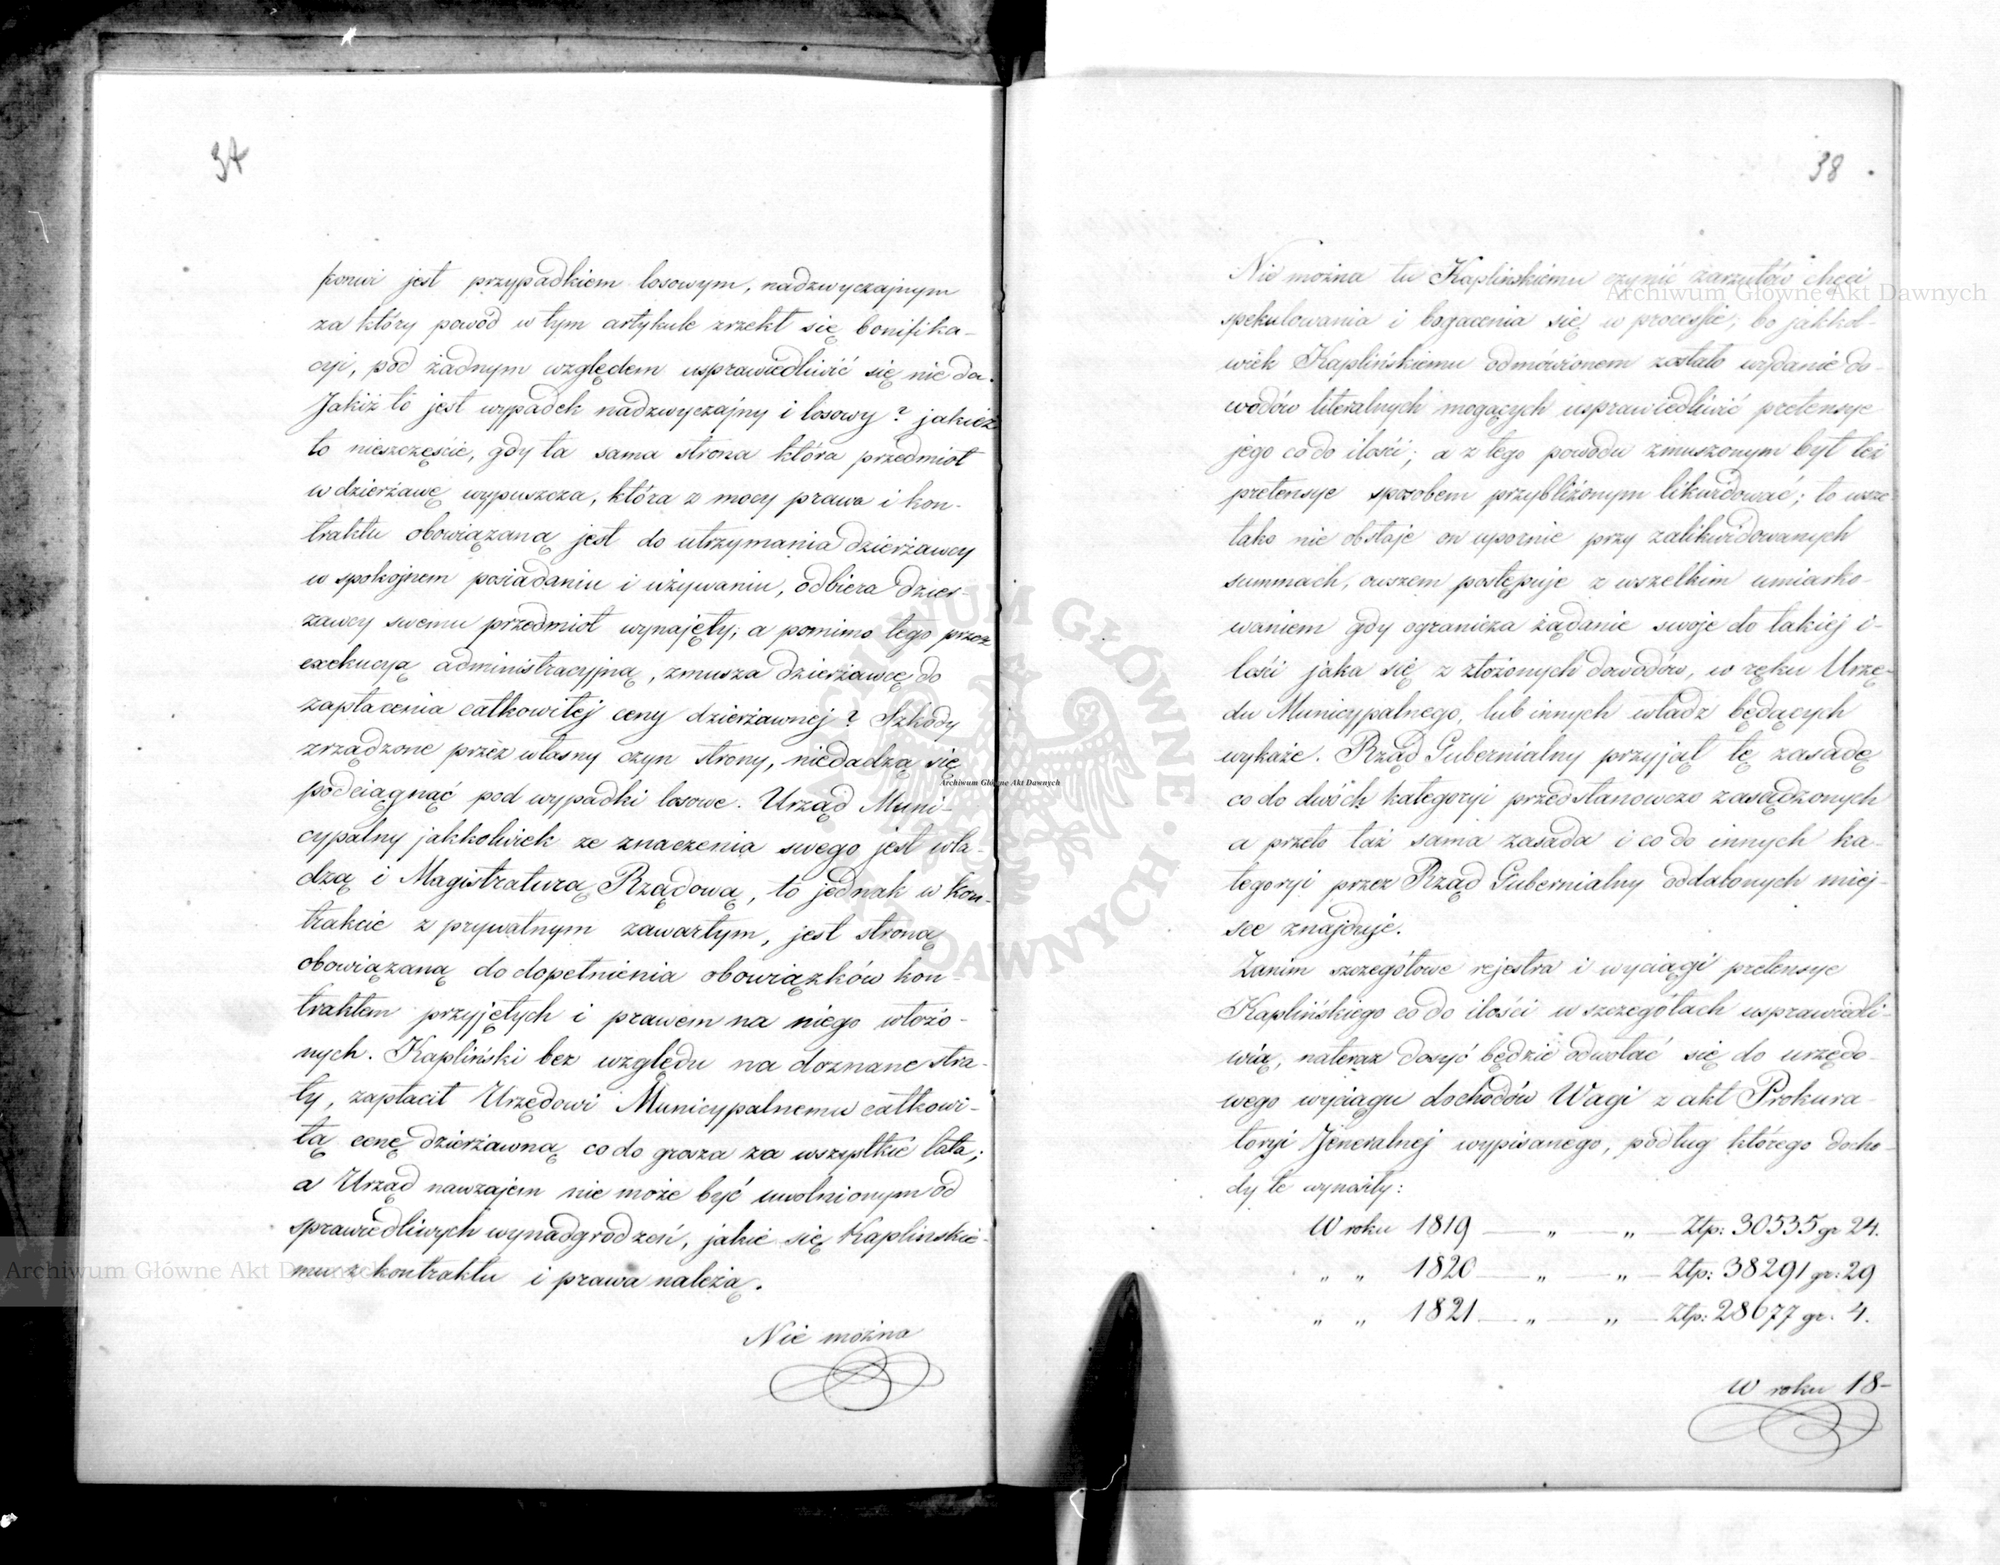 34
korwi jest przypadkiem losowym, nadzwyczajnym
za który powód w tym artykule zrzekł się bonifika-
cyi, pod żadnym względem usprawiedliwić się nie da.
Jakiż to jest wypadek nadzwyczajny i losowy? jakież
to nieszczęście, gdy ta sama strona która przedmiot
w dzierżawę wypuszcza, która z mocy prawa i kon-
traktu obowiązaną jest do utrzymania dzierżawcy
w spokojnem posiadaniu i używaniu, odbiera dzier-
zawcy swemu przedmiot wynajęty; a pomimo tego przez
exekucyą administracyjną, zmusza dzierżawcę do
zapłacenia całkowitej ceny dzierżawnej? Szkody
zrządzone przez własny czyn strony, niedadzą się
podciągnąć pod wypadki losowe. Urząd Muni-
cypalny jakkolwiek ze znaczenia swego jest wła-
dzą i Magistraturą Rządową, to jednak w kon-
trakcie z prywatnym zawartym, jest stroną
obowiązaną do dopełnienia obowiązków kon-
traktem przyjętych i prawem na niego włożo-
nych. Kapliński bez względu na doznane stra-
ty, zapłacił Urzędowi Municypalnemu całkowi-
tą cenę dzierżawną co do grosza za wszystkie lata;
a Urząd nawzajem nie może być uwolnionym od
sprawiedliwych wynadgrodzeń, jakie się Kaplinskie-
mu z kontraktu i prawa należą.
Nie można
38
Nie można tu Kaplińskiemu czynić zarzutów chęci
spekulowania i bogacenia się w processie; bo jakkol-
wiek Kaplińskiemu odmówionem zostało wydanie do-
wodów literalnych mogących usprawiedliwić pretensye
jego co do ilości; a z tego powodu zmuszonym był też
pretensye sposobem przybliżonym likwidować; to wsze-
tako nie obstaje on upornie przy zalikwidowanych
summach, owszem postępuje z wszelkim umiarko-
waniem gdy ogranicza żądanie swoje do takiej i-
lości jaka się z złożonych dowodów, w ręku Urzę-
du Municypalnego, lub innych władz będących
wykaże. Rząd Gubernialny przyjął tę zasadę
co do dwóch kategoryi przedstanowczo zasądzonych
a przeto taż sama zasada i co do innych ka-
tegoryi przez Rząd Gubernialny oddalonych miej-
sce znajduje.
Zanim szczegółowe rejestra i wyciągi pretensye
Kaplińskiego co do ilości w szczegółach usprawiedli-
wią, nateraz dosyć będzie odwołać się do urzędo-
wego wyciągu dochodów Wagi z akt Prokura-
toryi Jeneralnej wypisanego, podług którego docho-
dy te wynosiły:
W roku 1819 — „ — „ — Złp: 30535 gr 24.
„ „ 1820 — „ — „ — Złp: 38291 gr: 29
„ „ 1821 — „ — „ — Złp: 28677 gr. 4.
W roku 18-
Archiwum Główne Akt Dawnych
Archiwum Główne Akt Dawnych
Archiwum Główne Akt Dawnych
ARCHIWUM GŁÓWNE AKT DAWNYCH